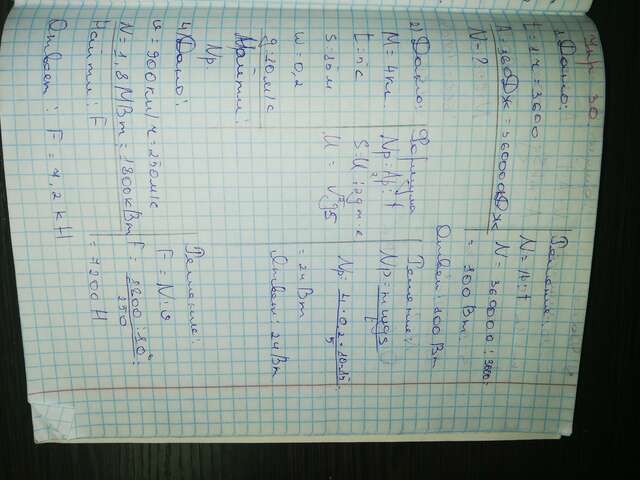 Упр 30.
1) Дано:
t = 1 ч = 3600
A = 360 Дж = 360000 Дж
N - ?
Решение:
N = A : t
N = 360000 : 3600 =
= 100 Вт.
Ответ: 100 Вт
2) Дано:
M = 4 кг
t = 5 с
S = 15 м
μ = 0,2
g = 10 м/с
Найти:
Np.
Формула
Np = Ap : t
Решение:
Np = mμgs
Np = 4 · 0,2 · 10 · 15 :
5
= 24 Вт
Ответ: 24 Вт
4) Дано:
v = 900 км/ч = 250 м/с
N = 1,8 МВт = 1800 кВт
Найти: F
Решение:
F = N : v
= 7200 Н
Ответ: F = 7,2 кН